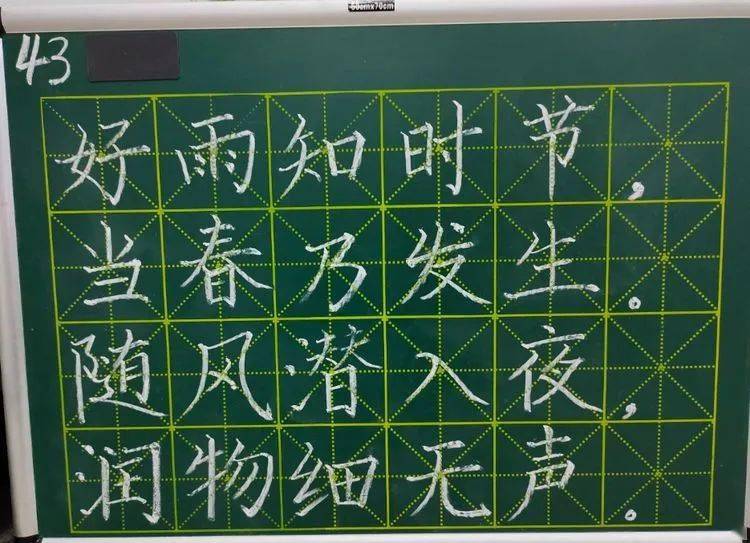 60cmx70cm
43
好雨知时节,
当春乃发生。
随风潜入夜,
润物细无声。